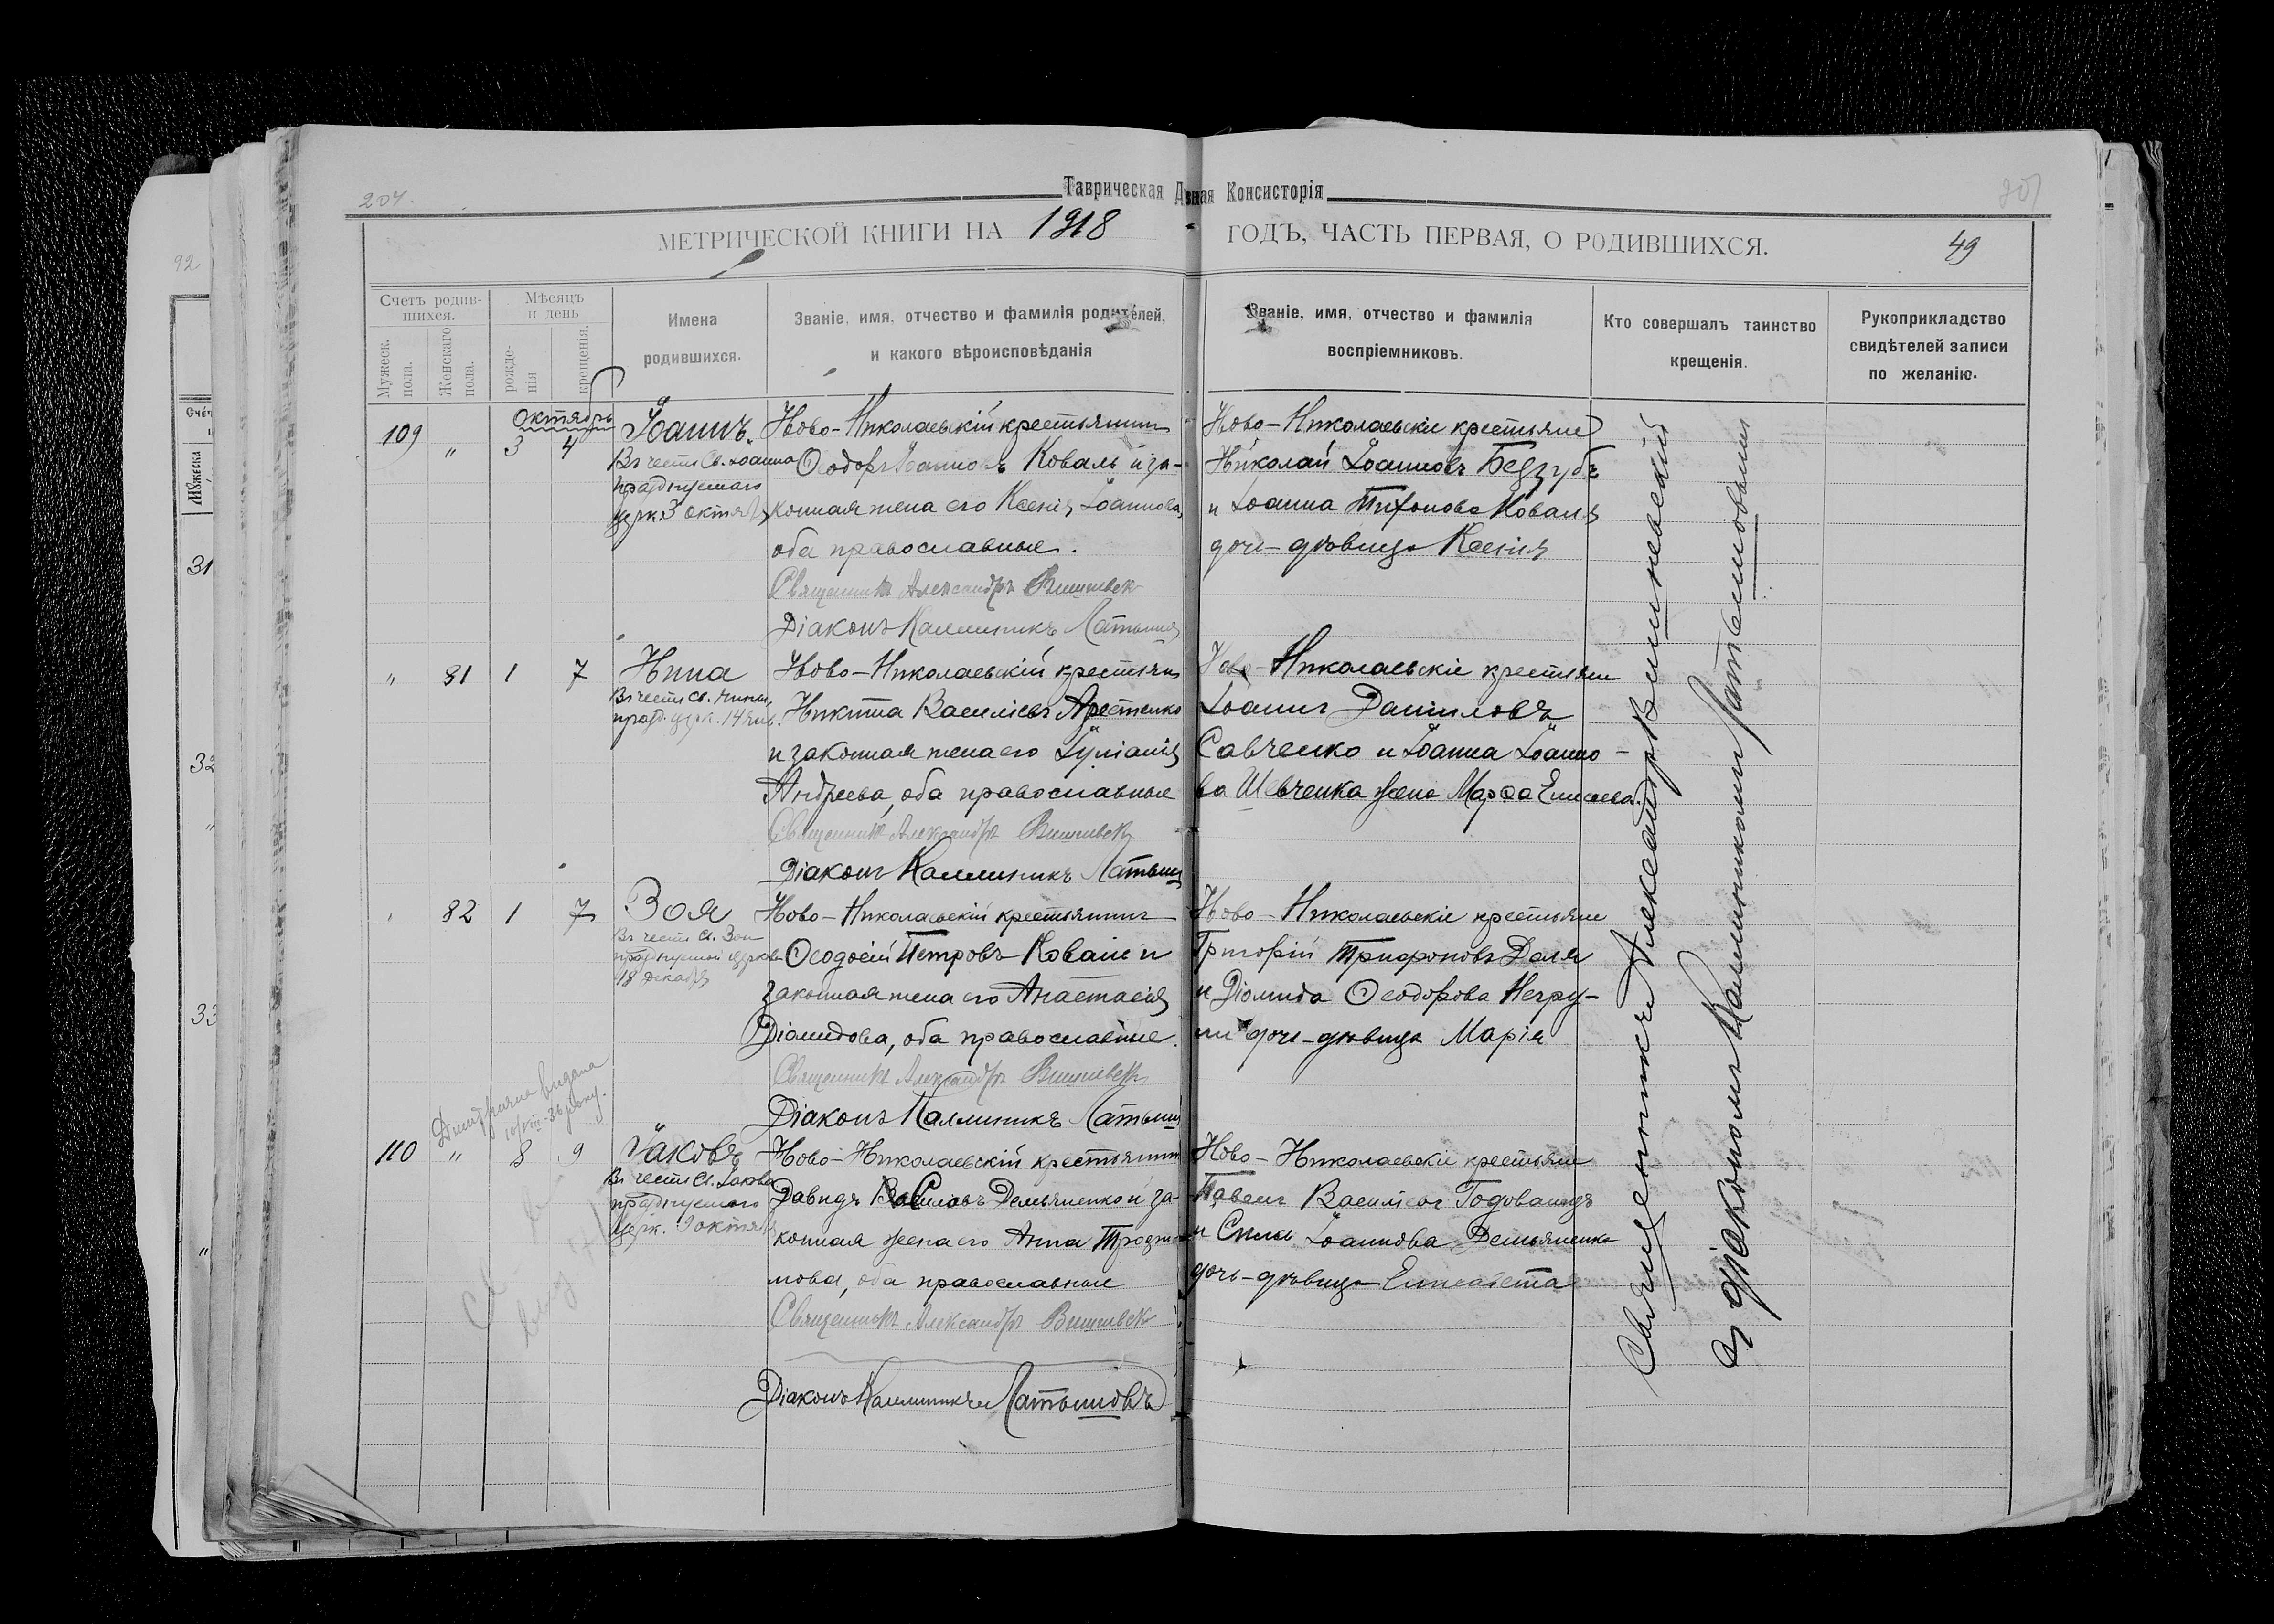 204.
Таврическая Д ная Консисторія
МЕТРИЧЕСКОЙ КНИГИ НА 1918 ГОДЪ, ЧАСТЬ ПЕРВАЯ, О РОДИВШИХСЯ.
49
92
Счетъ родив-
шихся.
Мужеск.
пола.
Женскаго
пола.
Мѣсяцъ
и день
рожде-
нія
крещенія.
Имена
родившихся.
Званіе, имя, отчество и фамилія родителей,
и какого вѣроисповѣданія
Званіе, имя, отчество и фамилія
воспріемниковъ.
Кто совершалъ таинство
крещенія.
Рукоприкладство
свидѣтелей записи
по желанію.
31
32
33
октябрь
109 " 3 4
Іоаннъ.
Въ честь Св. Іоанна
празднуемаго
церк. 3 октяб
Ново-Николаевскій крестьянинъ
Ѳеодоръ Іоанновъ Коваль и за-
конная жена его Ксенія Іоаннова,
оба православные.
Священникъ Александръ Вишневск
Діаконъ Каллиникъ Латыш
Ново-Николаевскіе крестьяне
Николай Іоанновъ Беззубъ
и Іоанна Тихонова Коваля
дочь-дѣвица Ксенія
" 81 1 7
Нина
Въ честь Св. Нины,
празд. церк. 14 янв.
Ново-Николаевскій крестьян
Никита Василіевъ Арестенко
и законная жена его Іуліанія
Андреева, оба православные
Священникъ Александръ Вишневск
Діаконъ Каллиникъ Латыш
Ново-Николаевскіе крестьяне
Іоаннъ Даниловъ
Савченко и Іоанна Іоанно-
ва Шевченка жена Марѳа Елисеева.
82 1 7
Зоя
Въ честь Св. Зои
празднуемой церковь
18 декабря
Ново-Николаевскій крестьянинъ
Ѳеодосій Петровъ Коваль и
законная жена его Анастасія
Діомидова, оба православные.
Священникъ Александръ Вишневск
Діаконъ Каллиникъ Латыш
Ново-Николаевскіе крестьяне
Григорій Трифоновъ Даля
и Діомида Ѳеодорова Негру-
ли дочь-дѣвица Марія
видана
110 " 8 9
Іаковъ
Въ честь Св. Іакова
празднуемаго
церк. 9 октяб
Ново-Николаевскій крестьянинъ
Давидъ Василовъ Демьяненко и за-
конная жена его Анна
мова, оба православные
Священникъ Александръ Вишневск
Діаконъ Каллиникъ Латышовъ
Ново-Николаевскіе крестьяне
Павелъ Василіевъ Годованецъ
и Силы Іоаннова Демьяненко
дочь-дѣвица Елисавета
Священникъ Александръ Вишневскій
съ діакономъ Каллиникомъ Латышовымъ